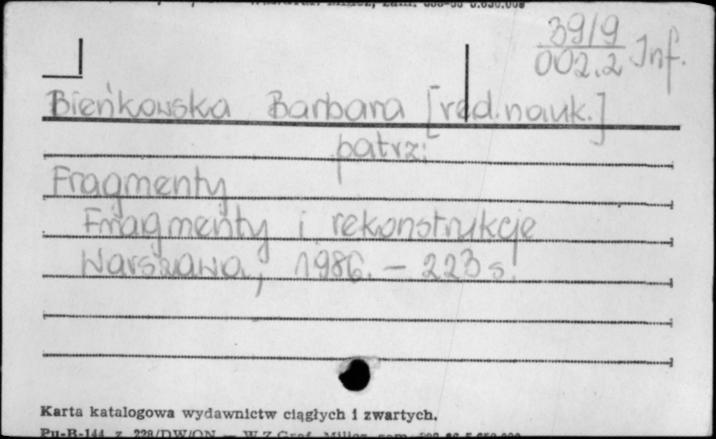 39/9
002.2 Inf.
Bieńkowska Barbara [red. nauk.]
patrz:
Fragmenty
Fragmenty i rekonstrukcje
Warszawa, 1986. – 223 s.
Karta katalogowa wydawnictw ciągłych i zwartych.
Pu-B-144 z. 228/DW/ON — W.Z.Graf. Milicz